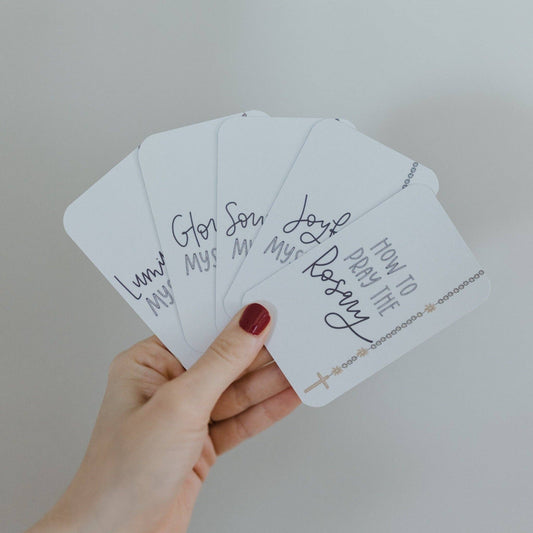 Lumi
MYS
Glor
MYS
Sorr
MYS
Joyf
MYS
HOW TO
PRAY THE
Rosary